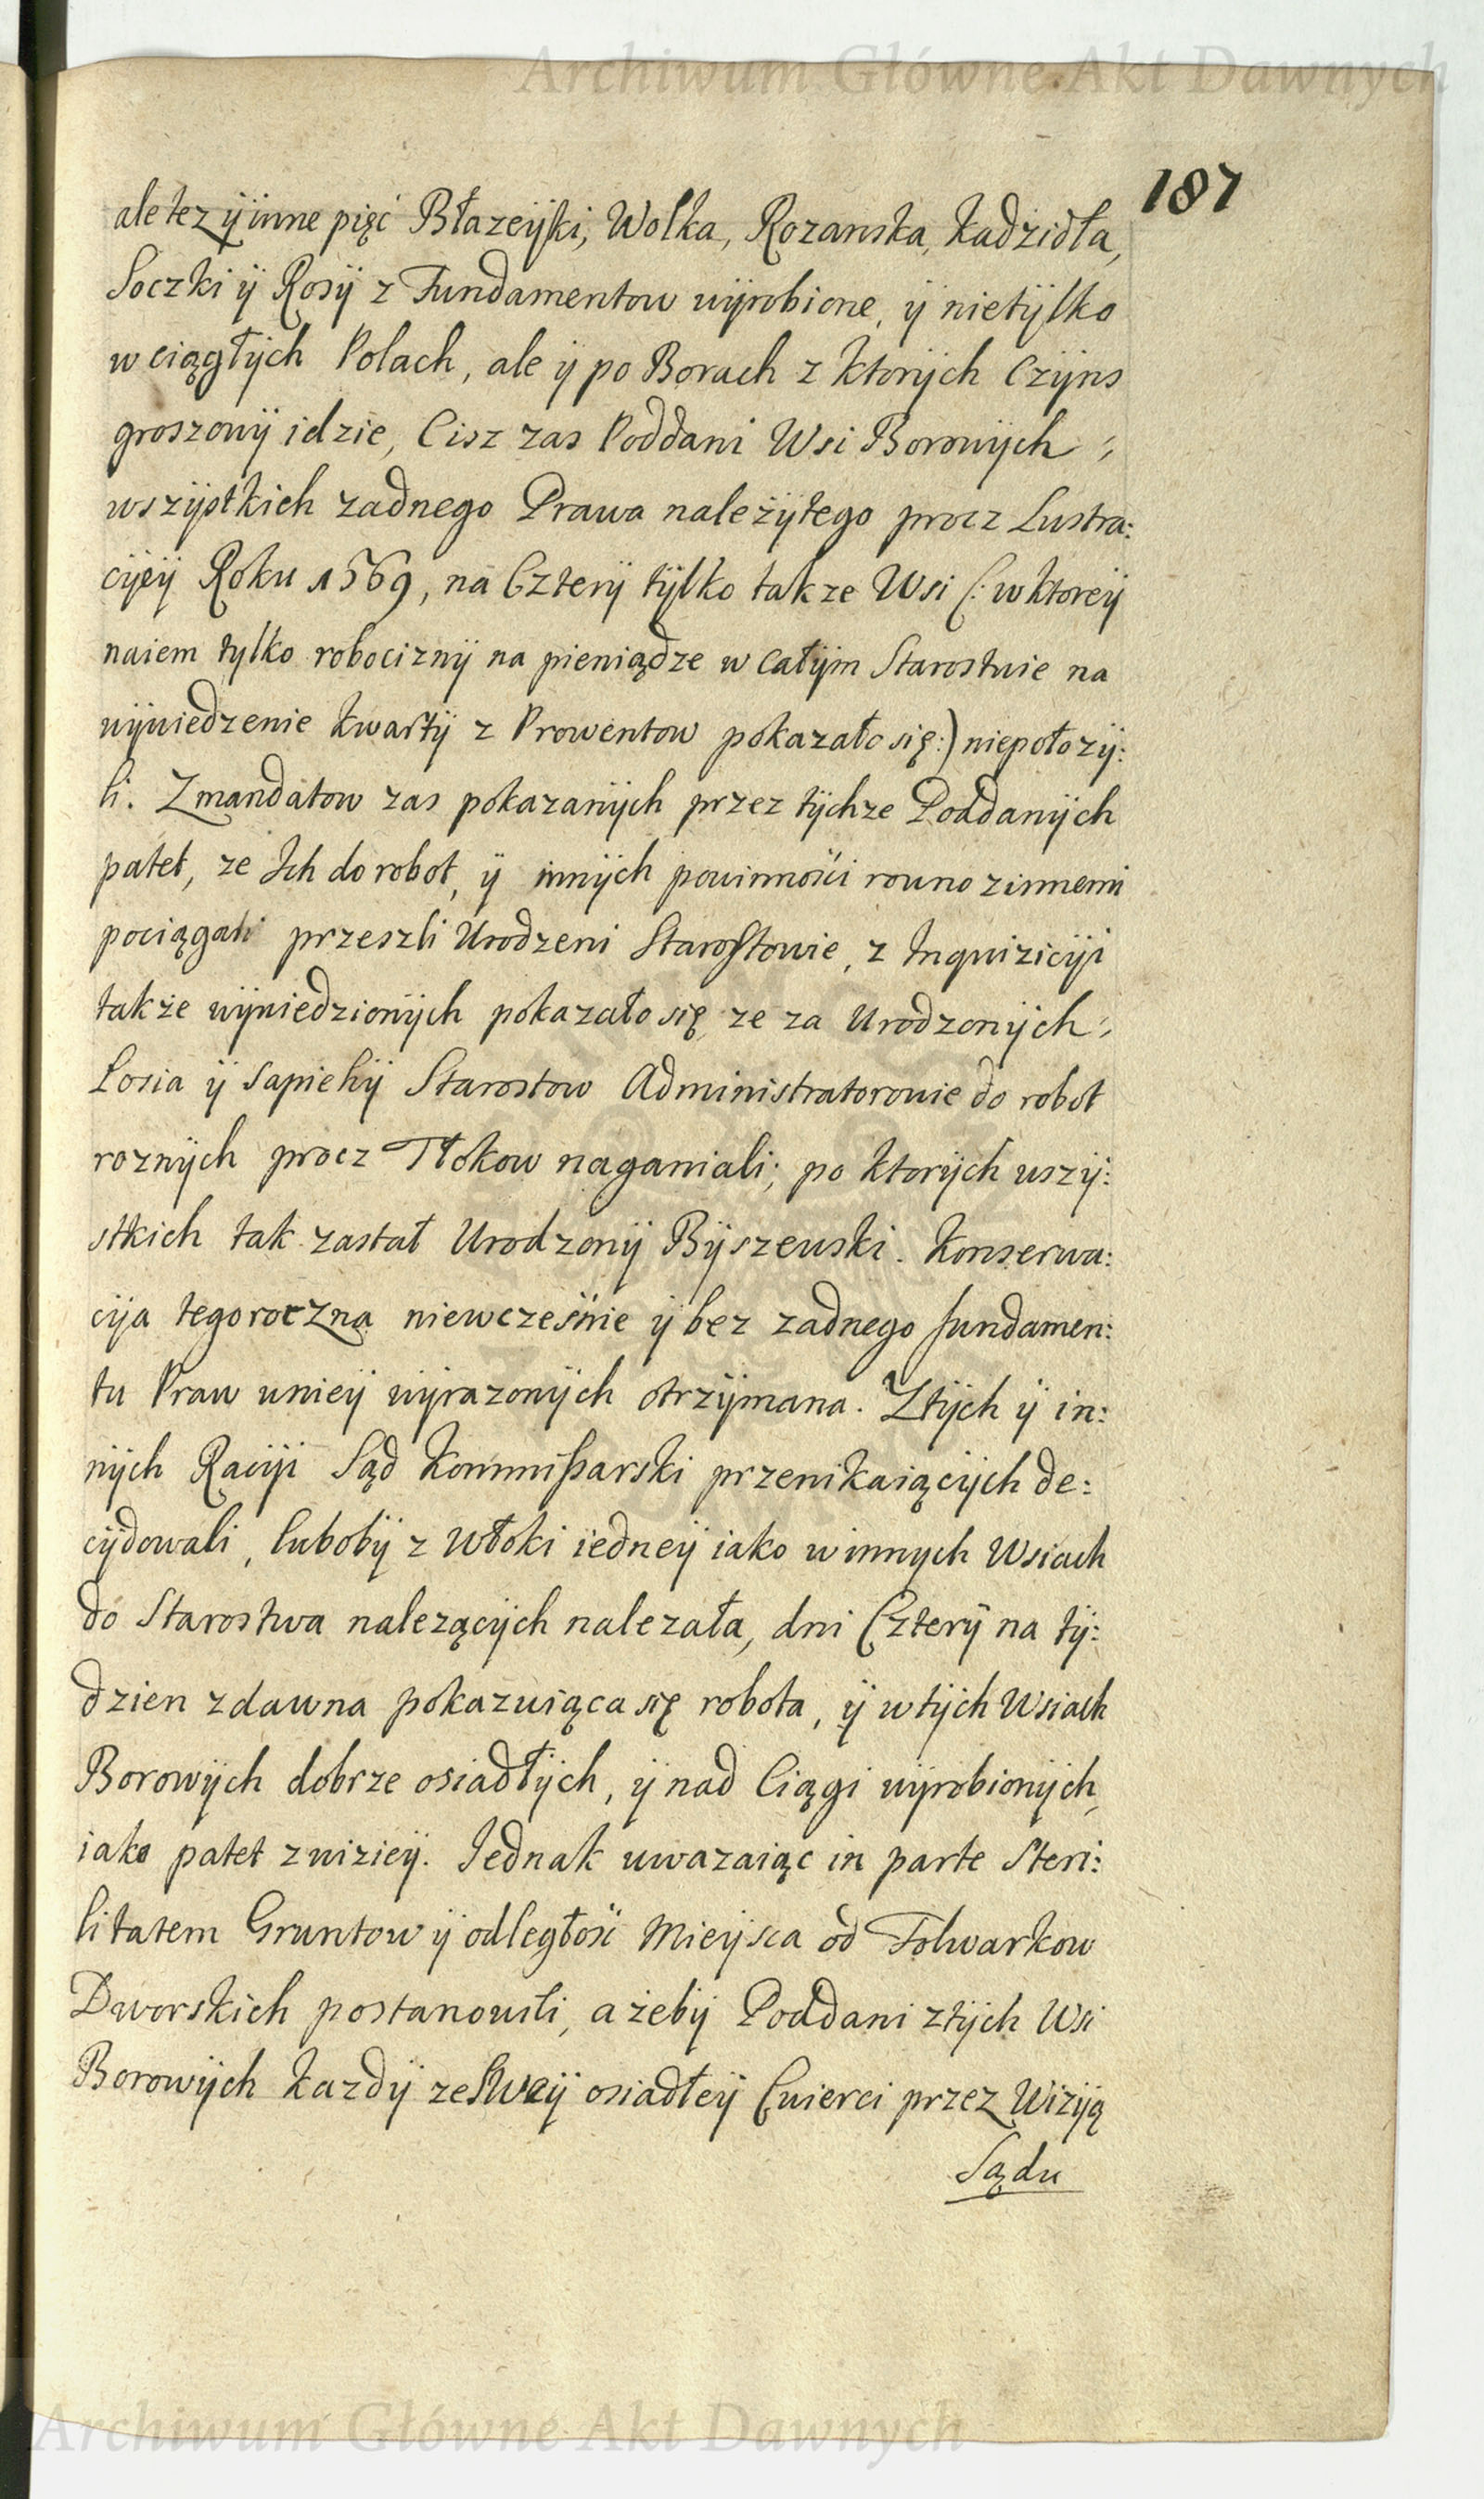 Archiwum Główne Akt Dawnych
187
ale tez ÿ inne pięć Błazeÿski, Wolka, Rozanska, Kadzidła,
Soczki ÿ Rosÿ z Fundamentow wÿrobione, ÿ nietÿlko
w ciągłÿch Polach, ale ÿ po Borach z ktorÿch Czÿns
groszowÿ idzie, Cisz zas Poddani Wsi Borowÿch
wszÿstkich zadnego Prawa należÿtego procz Lustra:
cÿeÿ Roku 1569, na Czterÿ tÿlko takze Wsi (: w ktoreÿ
naiem tylko robociznÿ na pieniądze w całÿm Starostwie na
wÿwiedzenie Kwartÿ z Prowentow pokazało się:) niepołozÿ:
li. Zmandatow zas pokazanÿch przez tÿchze Poddanÿch
patet, ze Ich do robot, ÿ innÿch powinności rowno zinnemi
pociągali przeszli Urodzeni Starostowie, z Inquiziciji
także wÿwiedzionÿch pokazało się ze za Urodzonÿch
Losia ÿ Sapiehÿ Starostow Administratorowie do robot
roznÿch procz Tłokow naganiali; po ktorÿch wszÿ:
stkich tak zastał Urodzonÿ Bÿszewski. Konserwa:
cija tegoroczna niewcześnie ÿ bez zadnego fundamen:
tu Praw wnieÿ wÿrazonÿch otrzÿmana. Ztÿch ÿ in:
nÿch Raciji Sąd Kommissarski przenikaiącÿch de:
cÿdowali, lubobÿ z Włoki iedneÿ iako w innych Wsiach
do Starostwa nalezącÿch nalezała, dni Czterÿ na tÿ:
dzien zdawna pokazuiąca się robota, ÿ w tÿch Wsiach
Borowÿch dobrze osiadłÿch, ÿ nad Ciągi wÿrobionÿch,
iako patet zwizieÿ. Jednak uwazaiąc in parte Steri:
litatem Gruntow ÿ odległość Mieÿsca od Folwarkow
Dworskich postanowili, ażebÿ Poddani ztÿch Wsi
Borowÿch Kazdÿ ze Sweÿ osiadłeÿ Cwierci przez Wizÿą
Sądu
Archiwum Główne Akt Dawnych